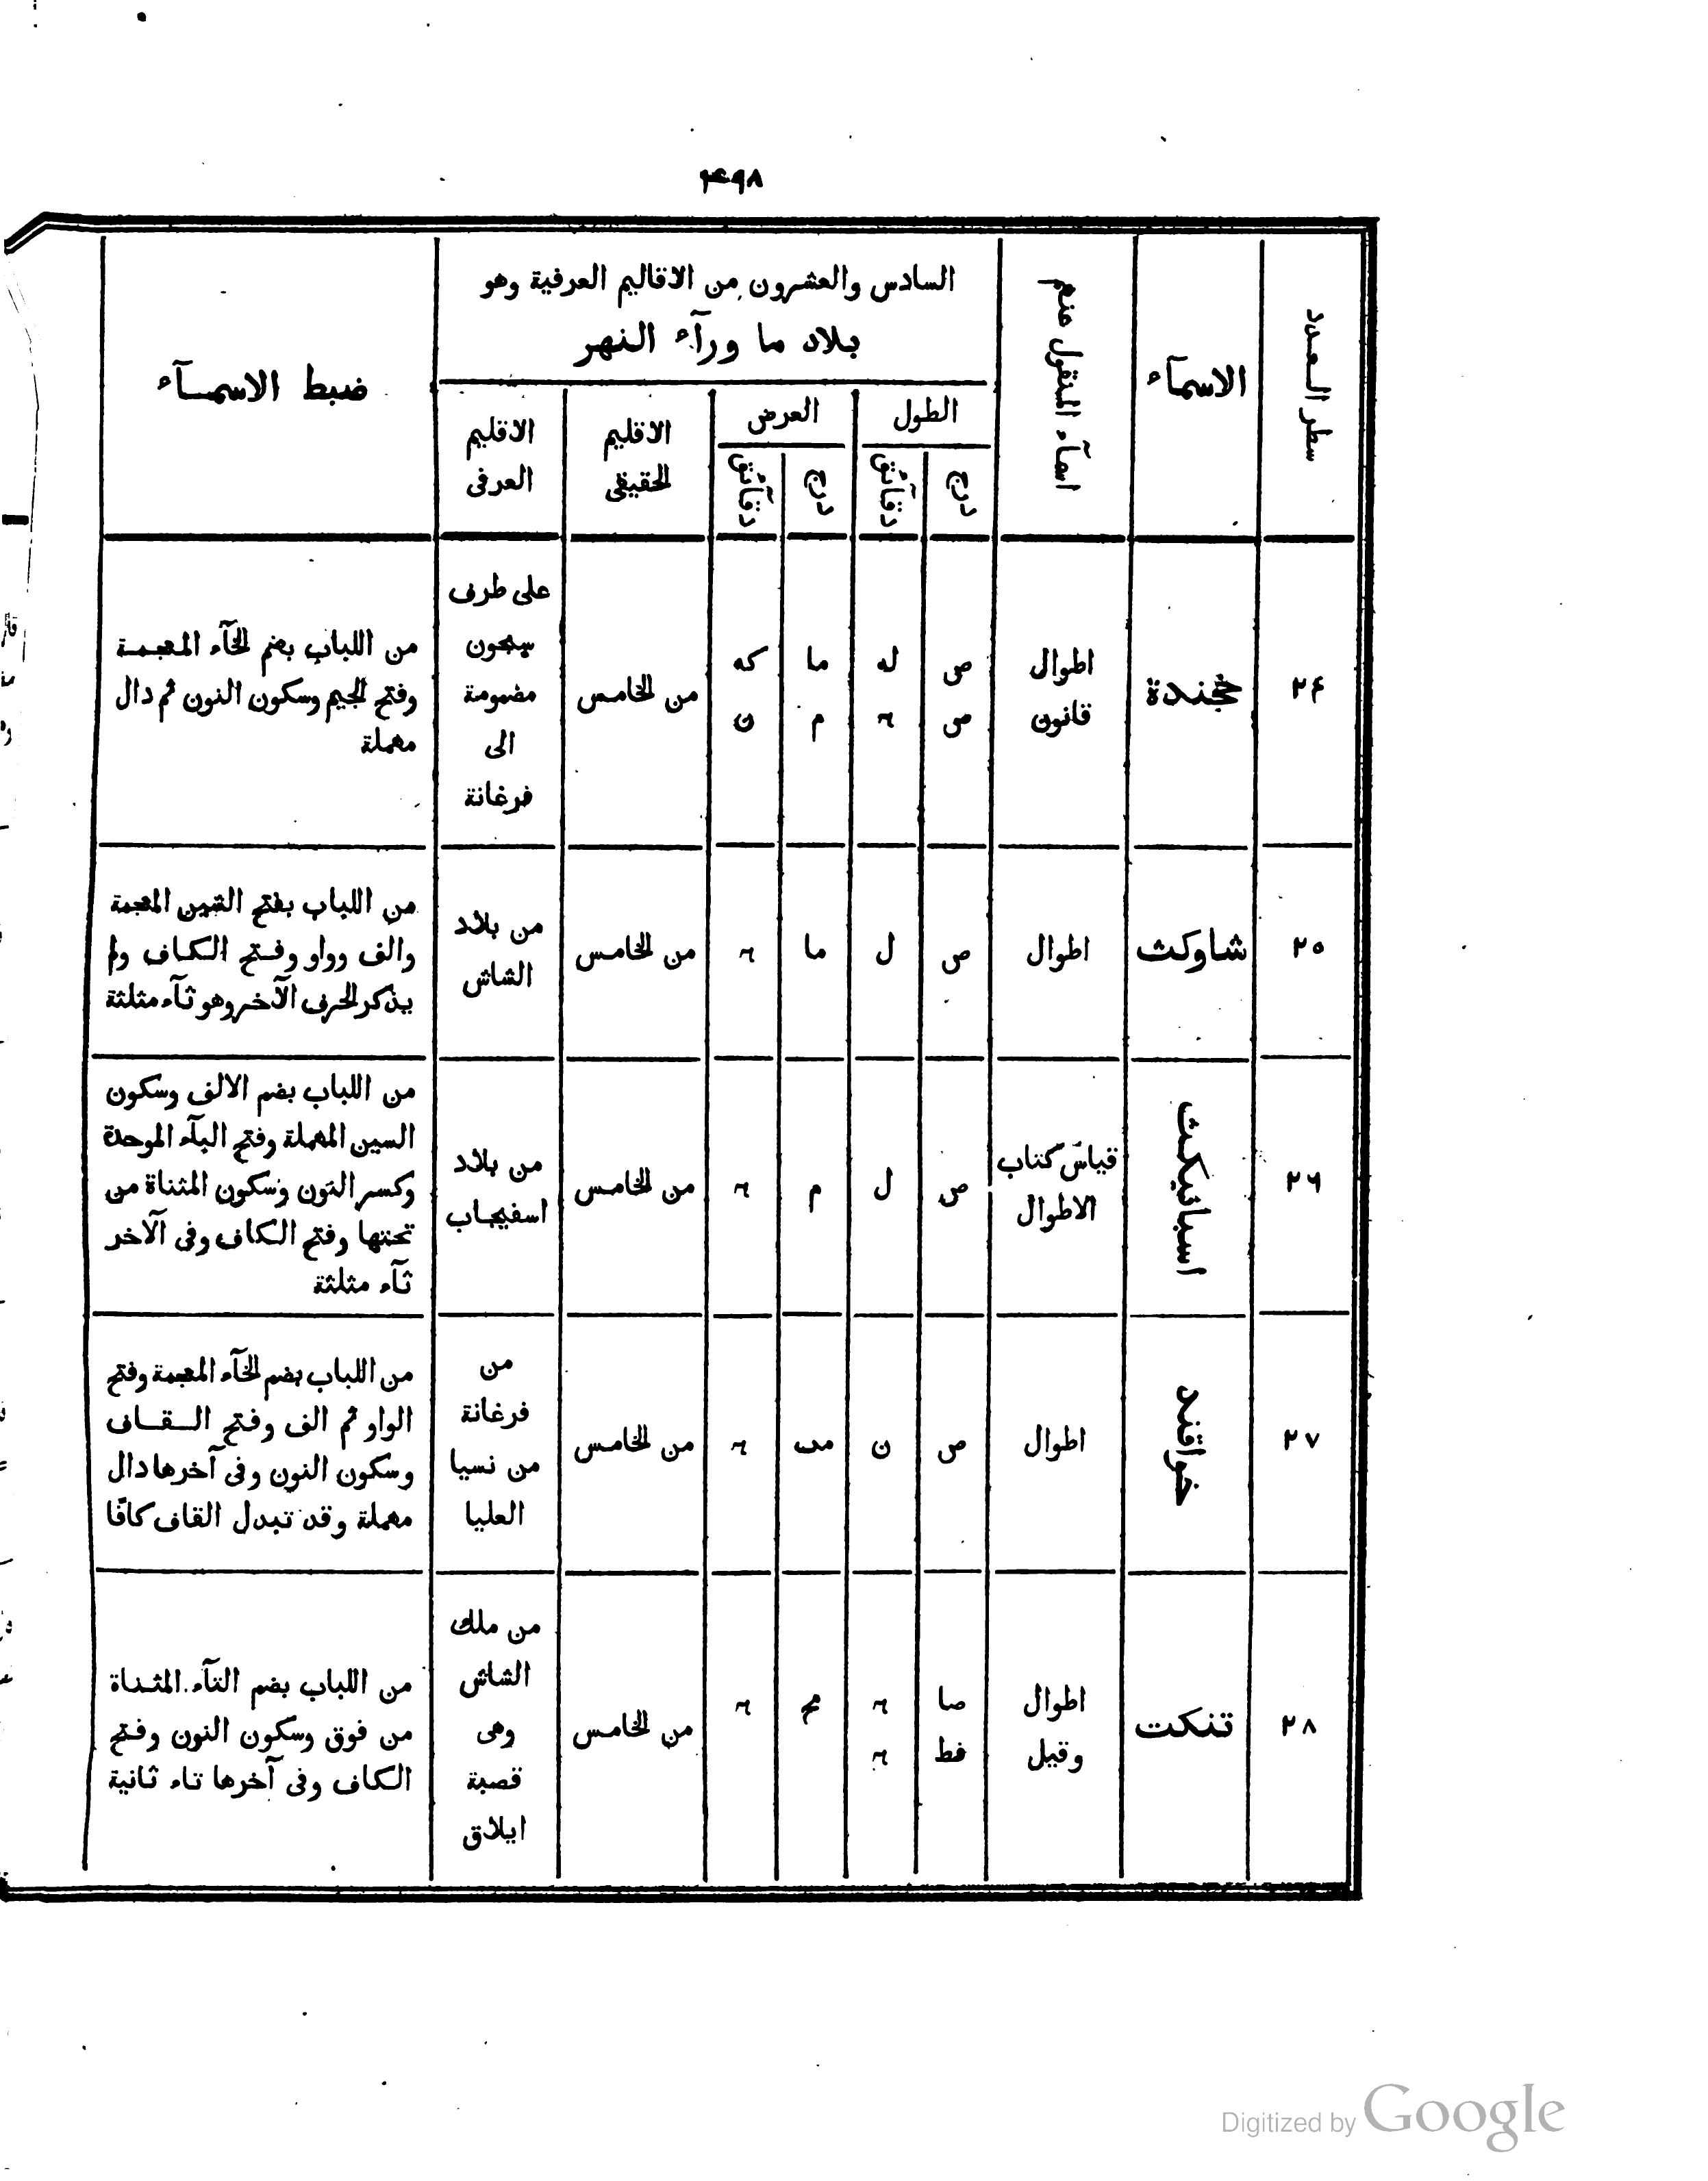 ۴۹۸
سطر العدد
الاسمآء
اسمآء المنقول عنهم
السادس والعشرون من الاقاليم العرفية وهو
بلاد ما ورآء النهر
الطول
درج
دقآئق
العرض
درج
دقآئق
الاقليم
الحقيقى
الاقليم
العرفى
ضبط الاسمــآء
۲۴
خجندة
اطوال
قانون
ص
ص
له
ما
م
كه
ن
من الخامس
على طرف
سيحون
مضمومة
الى
فرغانة
من اللباب بضم الخآء المعجمة
وفتح الجيم وسكون النون ثم دال
مهملة
۲۵
شاوكث
اطوال
ص
ل
ما
من الخامس
من بلاد
الشاش
من اللباب بفتح الشين المعجمة
والف وواو وفتح الكاف ولم
يذكر الحرف الآخر وهو ثآء مثلثة
۲۶
اسبانيكث
قياس كتاب
الاطوال
ص
ل
م
من الخامس
من بلاد
اسفيجاب
من اللباب بضم الالف وسكون
السين المهملة وفتح البآء الموحدة
وكسر النون وسكون المثناة من
تحتها وفتح الكاف وفى الآخر
ثآء مثلثة
۲۷
خواقند
اطوال
ص
ن
مب
من الخامس
من
فرغانة
من نسيا
العليا
من اللباب بضم الخآء المعجمة وفتح
الواو ثم الف وفتح الــقــاف
وسكون النون وفى آخرها دال
مهملة وقد تبدل القاف كافًا
۲۸
تنكت
اطوال
وقيل
صا
فط
مج
من الخامس
من ملك
الشاش
وهى
قصبة
ايلاق
من اللباب بضم التآء المثناة
من فوق وسكون النون وفتح
الكاف وفى آخرها تاء ثانية
Digitized by Google